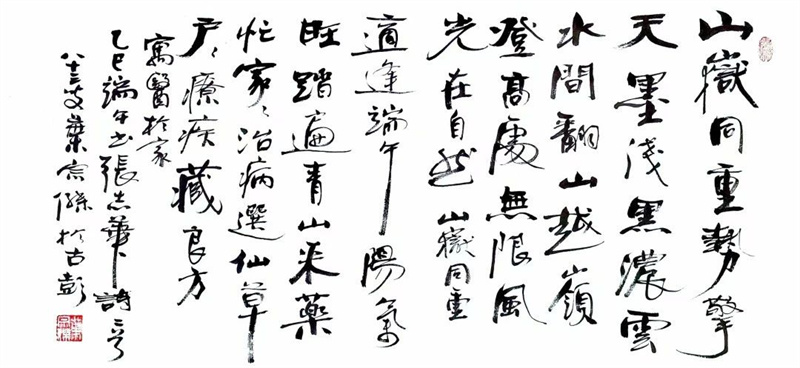 山嶽同重勢擎
天墨淺黑濃雲
水間翻山越嶺
登高處無限風
光在自然 山嶽同重
適逢端午陽氣
旺踏遍青山采藥
忙家〻治病選仙草
户〻療疾藏良方
寓醫於家
乙巳端午书張志華詩二首
八十三叟葉宗滌於古彭